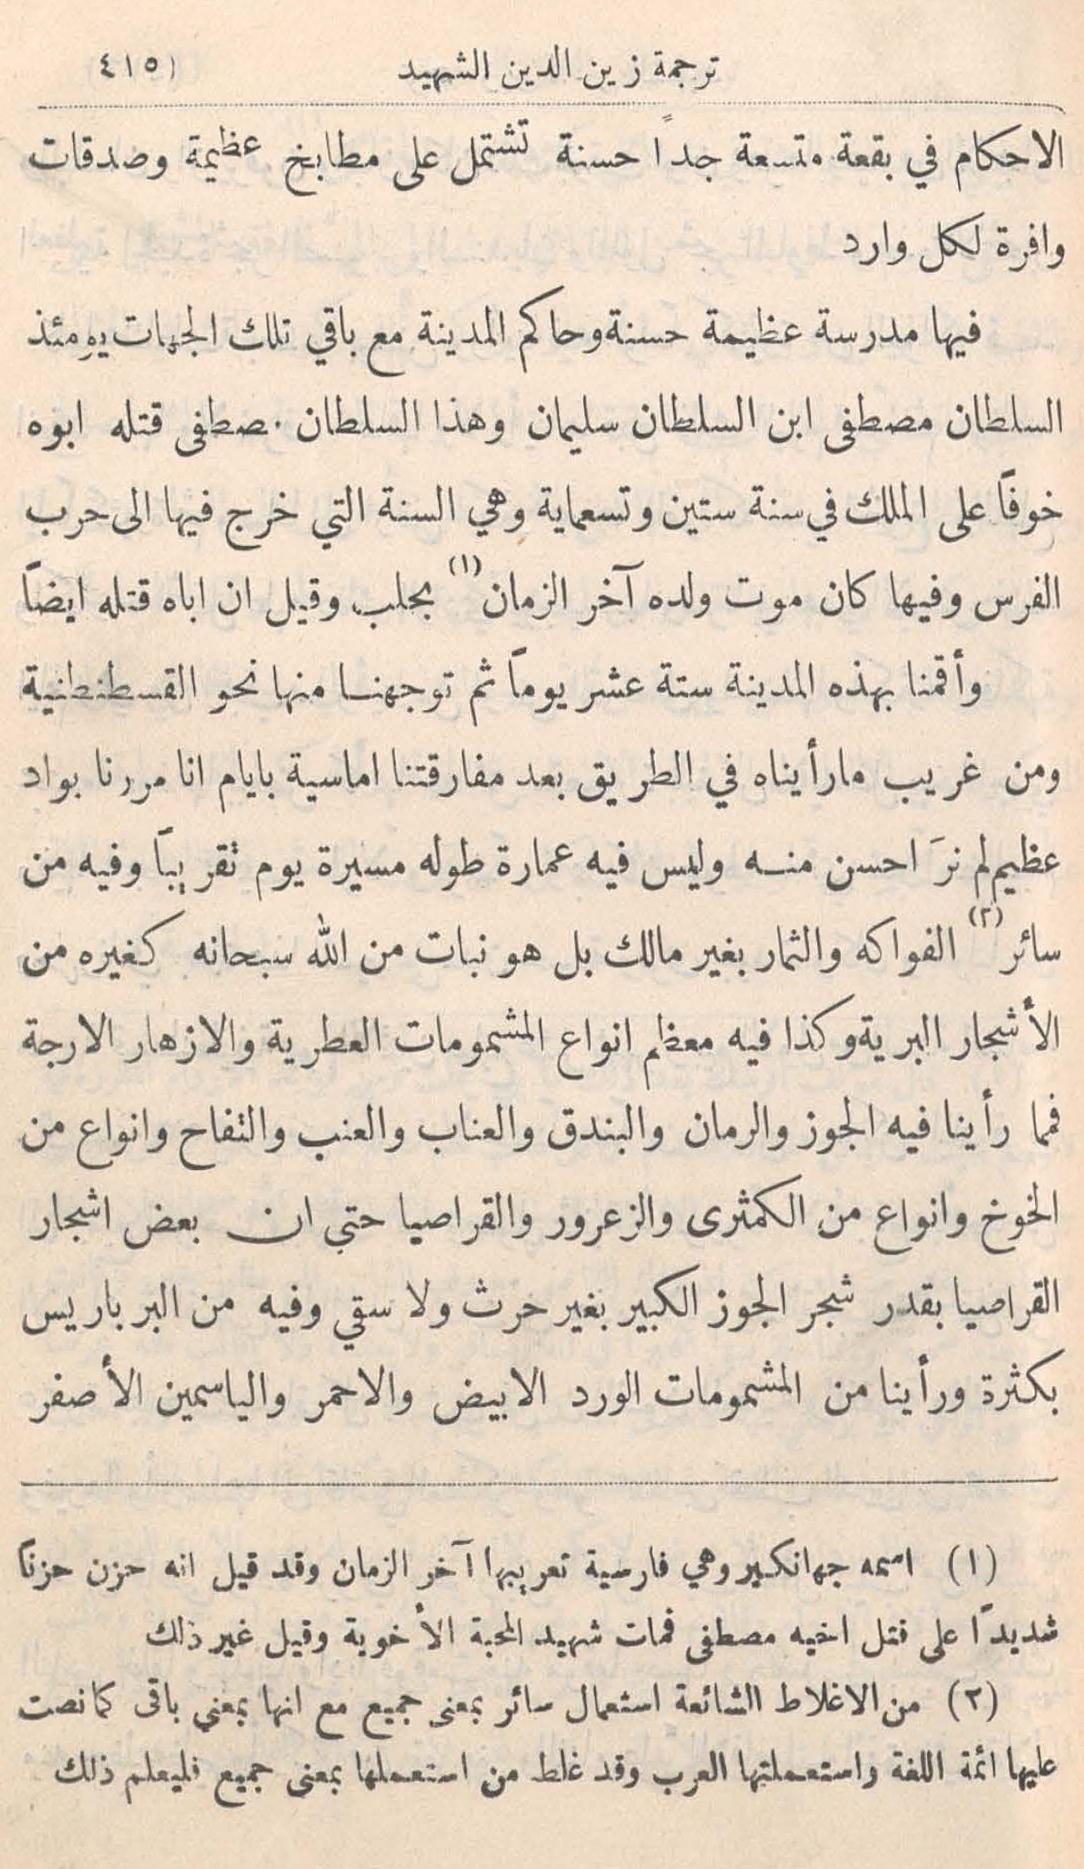 ترجمة زين الدين الشهيد (٤١٥)
الاحكام في بقعة متسعة جداً حسنة تشتمل على مطابخ عظيمة وصدقات
وافرة لكل وارد
فيها مدرسة عظيمة حسنة وحاكم المدينة مع باقي تلك الجهات يومئذ
السلطان مصطفى ابن السلطان سليمان وهذا السلطان مصطفى قتله ابوه
خوفاً على الملك في سنة ستين وتسعماية وهي السنة التي خرج فيها الى حرب
الفرس وفيها كان موت ولده آخر الزمان (١) بحلب وقيل ان اباه قتله ايضاً
وأقمنا بهذه المدينة ستة عشر يوماً ثم توجهنا منها نحو القسطنطنية
ومن غريب مارأيناه في الطريق بعد مفارقتنا اماسية بايام انا مررنا بواد
عظيم لم نرَ احسن منه وليس فيه عمارة طوله مسيرة يوم تقريباً وفيه من
سائر (٢) الفواكه والثمار بغير مالك بل هو نبات من الله سبحانه كغيره من
الأشجار البرية وكذا فيه معظم انواع المشمومات العطرية والازهار الارجة
فما رأينا فيه الجوز والرمان والبندق والعناب والعنب والتفاح وانواع من
الخوخ وانواع من الكمثرى والزعرور والقراصيا حتي ان بعض اشجار
القراصيا بقدر شجر الجوز الكبير بغير حرث ولا سقي وفيه من البرباريس
بكثرة ورأينا من المشمومات الورد الابيض والاحمر والياسمين الأصفر
(١) اسمه جهانكير وهي فارسية تعريبها آخر الزمان وقد قيل انه حزن حزناً
شديداً على قتل اخيه مصطفى فمات شهيد المحبة الأخوية وقيل غير ذلك
(٢) من الاغلاط الشائعة استعمال سائر بمعنى جميع مع انها بمعني باقى كما نصت
عليها ائمة اللغة واستعملتها العرب وقد غلط من استعملها بمعنى جميع فليعلم ذلك